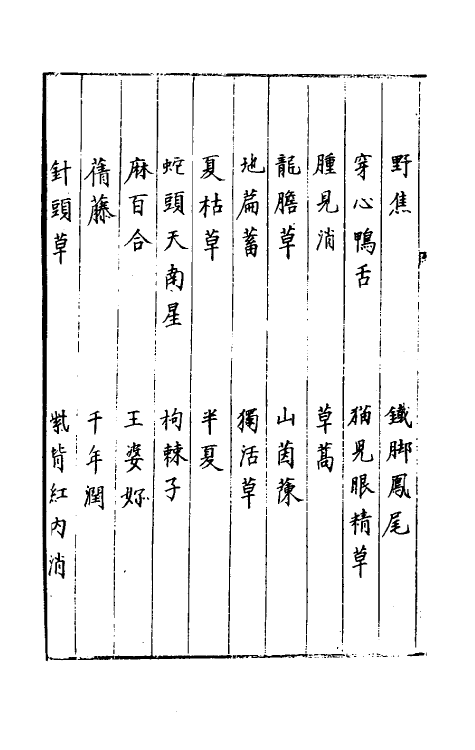 野焦　鐵脚鳳尾
穿心鴨舌　猫見眼精草
腫見消　草蒿
龍膽草　山茵蔯
地萹蓄　獨活草
夏枯草　半夏
蛇頭天南星　枸棘子
麻百合　王婆妳
蒨藤　千年潤
針頭草　紫背紅內消